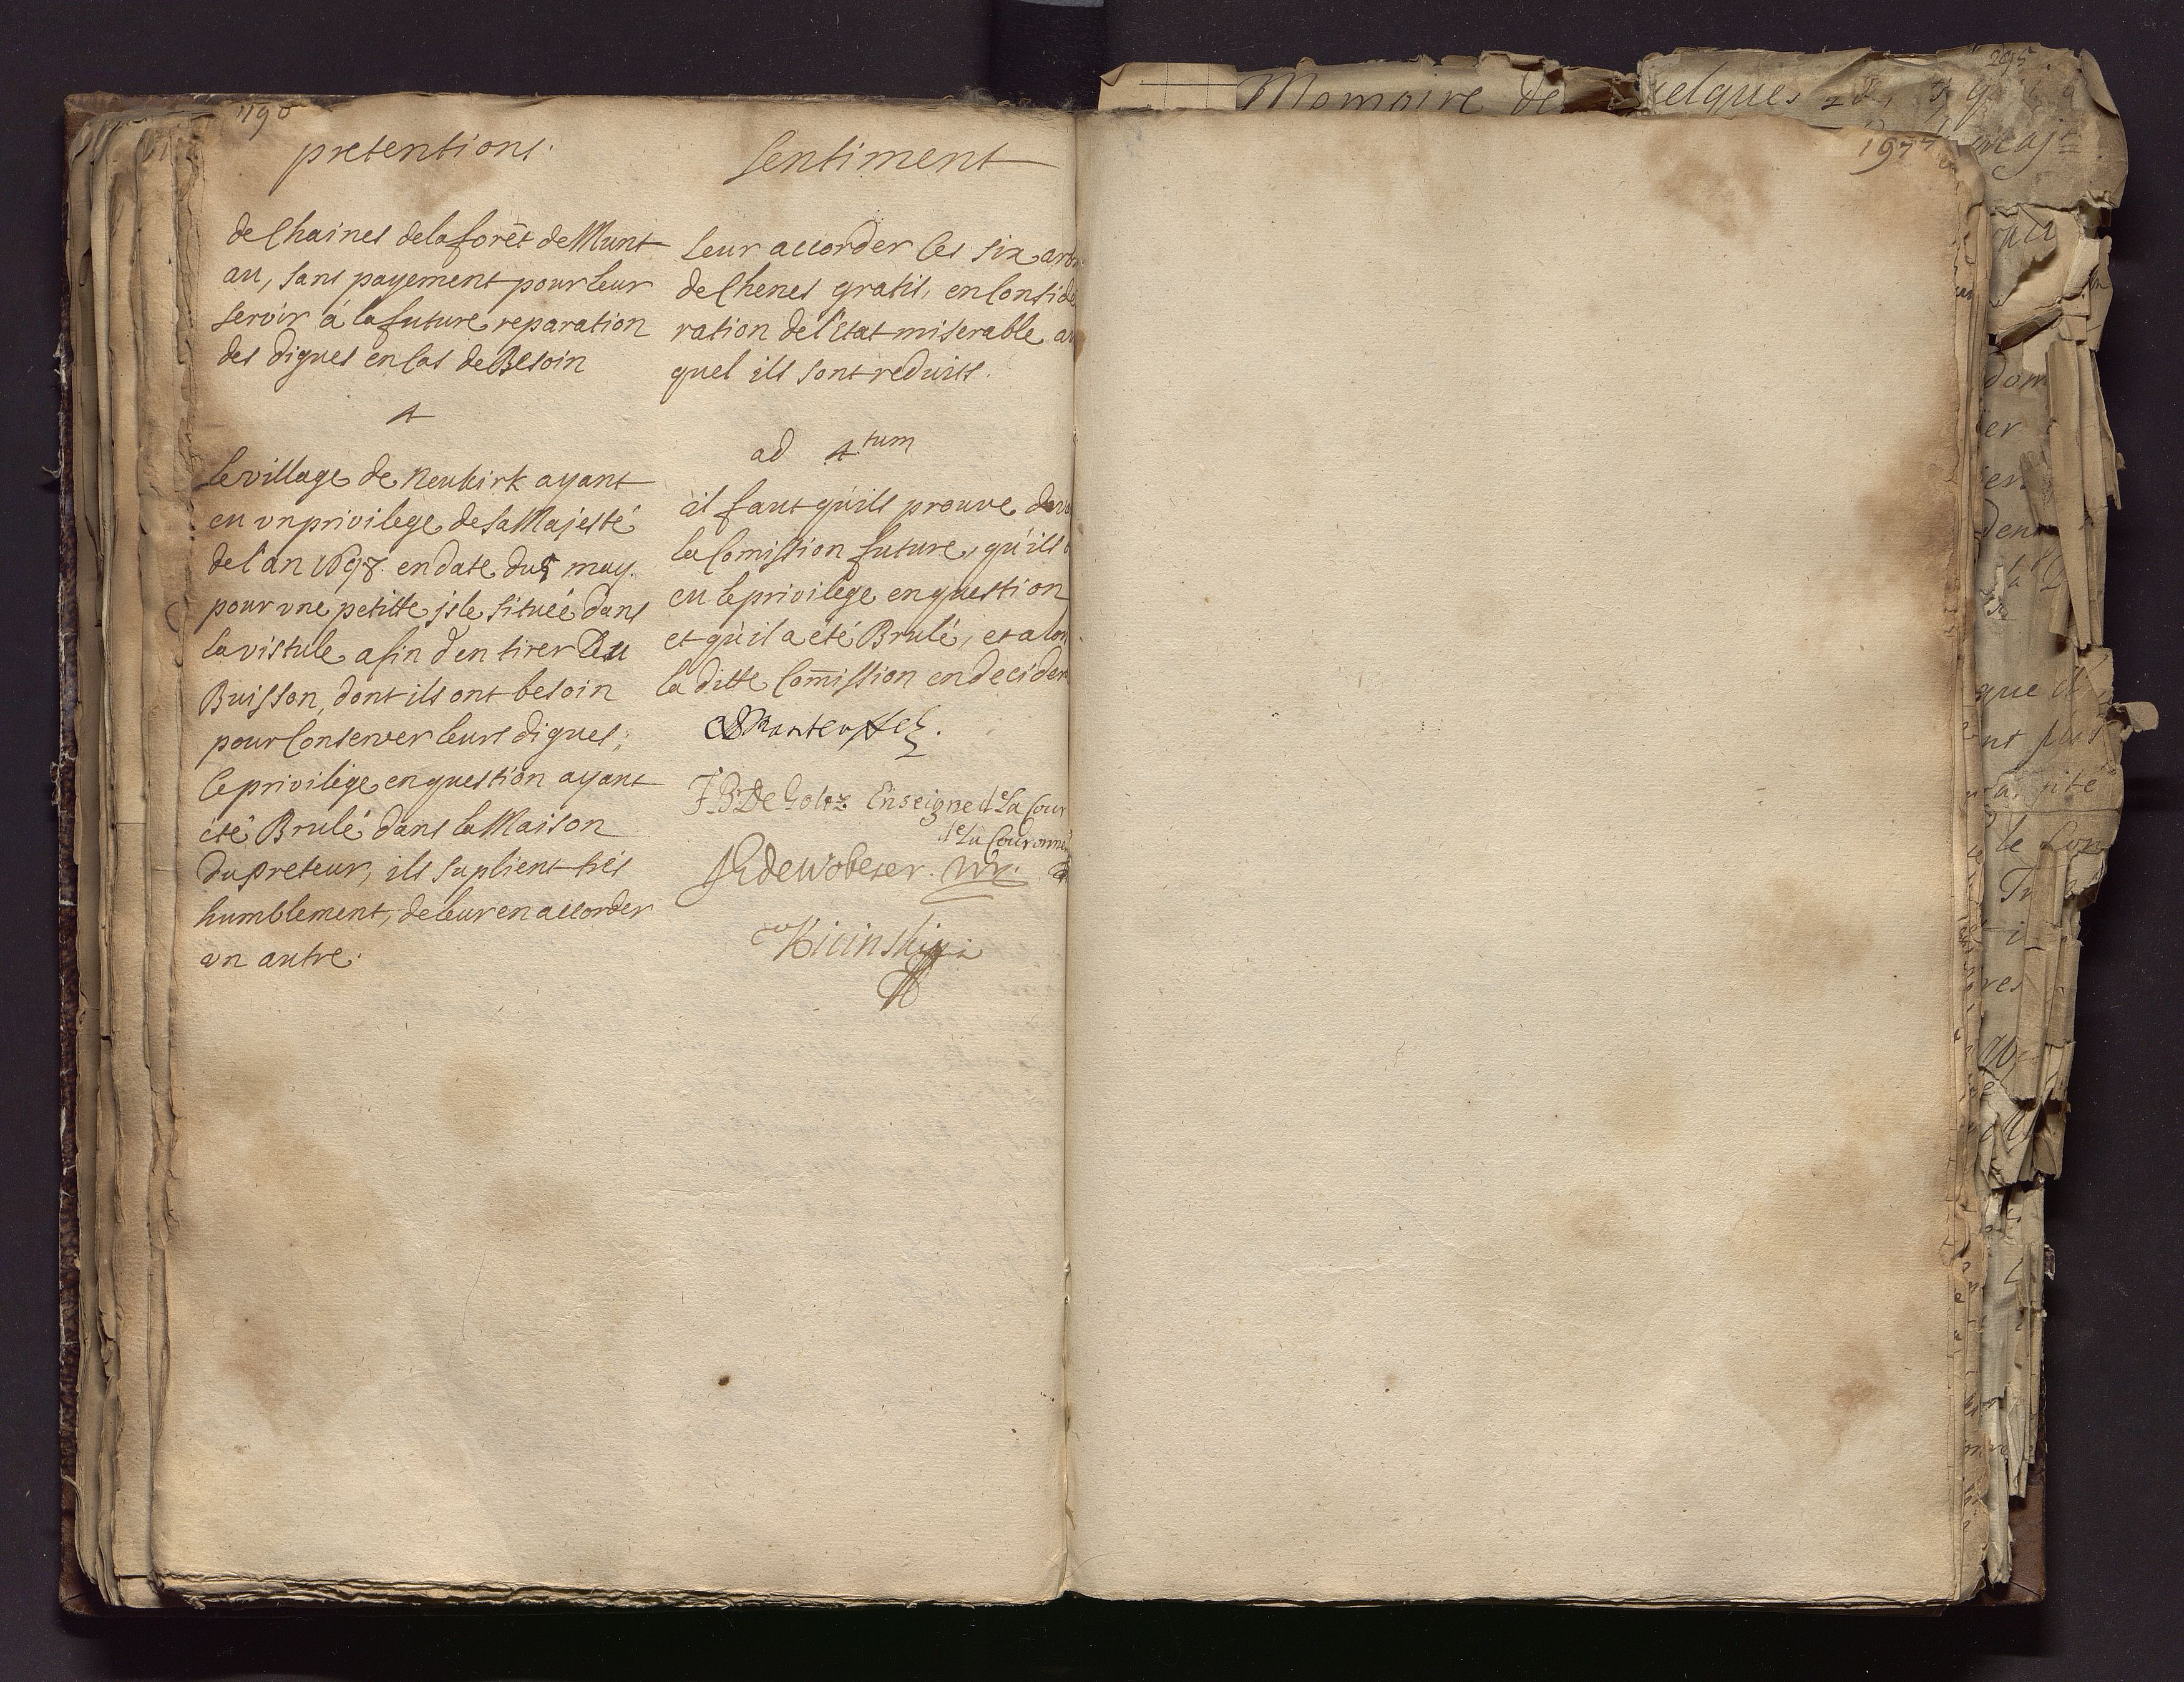 190
pretentions.
de Chaines de la forêt de Munt
au, sans payement pour leur
servir á la future reparation
des digues en Cas de Besoin
4
le village de Neukirk ayant
eu vn privilege de sa Majesté
de l'an 1698. en date du 5 may.
pour vne petitte jsle situeé dans
la vistule afin d'en tirer du
Buisson, dont ils ont besoin
pour Conserver leurs digues,
le privilége en question ayant
été Brulé dans la Maison
du preteur, ils suplient trés
humblement, de leur en accorder
vn autre.
Sentiment
leur accorder les six arb
de Chenes gratis, en Consid
ration de l'Etat miserable au
quel ils sont reduits.
ad 4tum
il faut qu'ils prouve dev
la Comission future, qu'ils
eu le privilége en question
et qu'il a été Brulé, et alor
la ditte Com̄ission en decider
Manteuffel.
J B De Goltz Enseigne de La Cour
de La Couronne
de Wobeser.
Kicinsky
197
295
Memoire de quelques